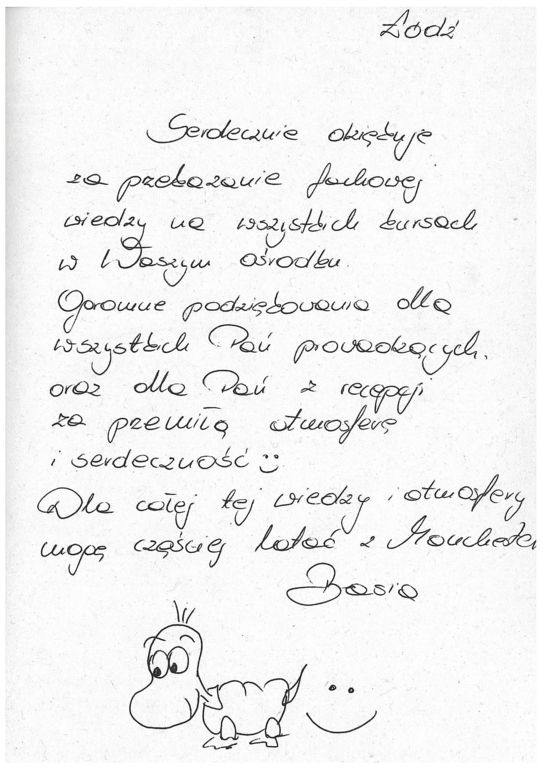 Łódź
Serdecznie dziękuję
za przekazanie fachowej
wiedzy na wszystkich kursach
w Waszym ośrodku.
Ogromne podziękowania dla
wszystkich Pań prowadzących,
oraz dla Pań z recepcji
za przemiłą atmosferę
i serdeczność
Dla całej tej wiedzy i atmosfery
mogę częściej latać z Manchester
Basia